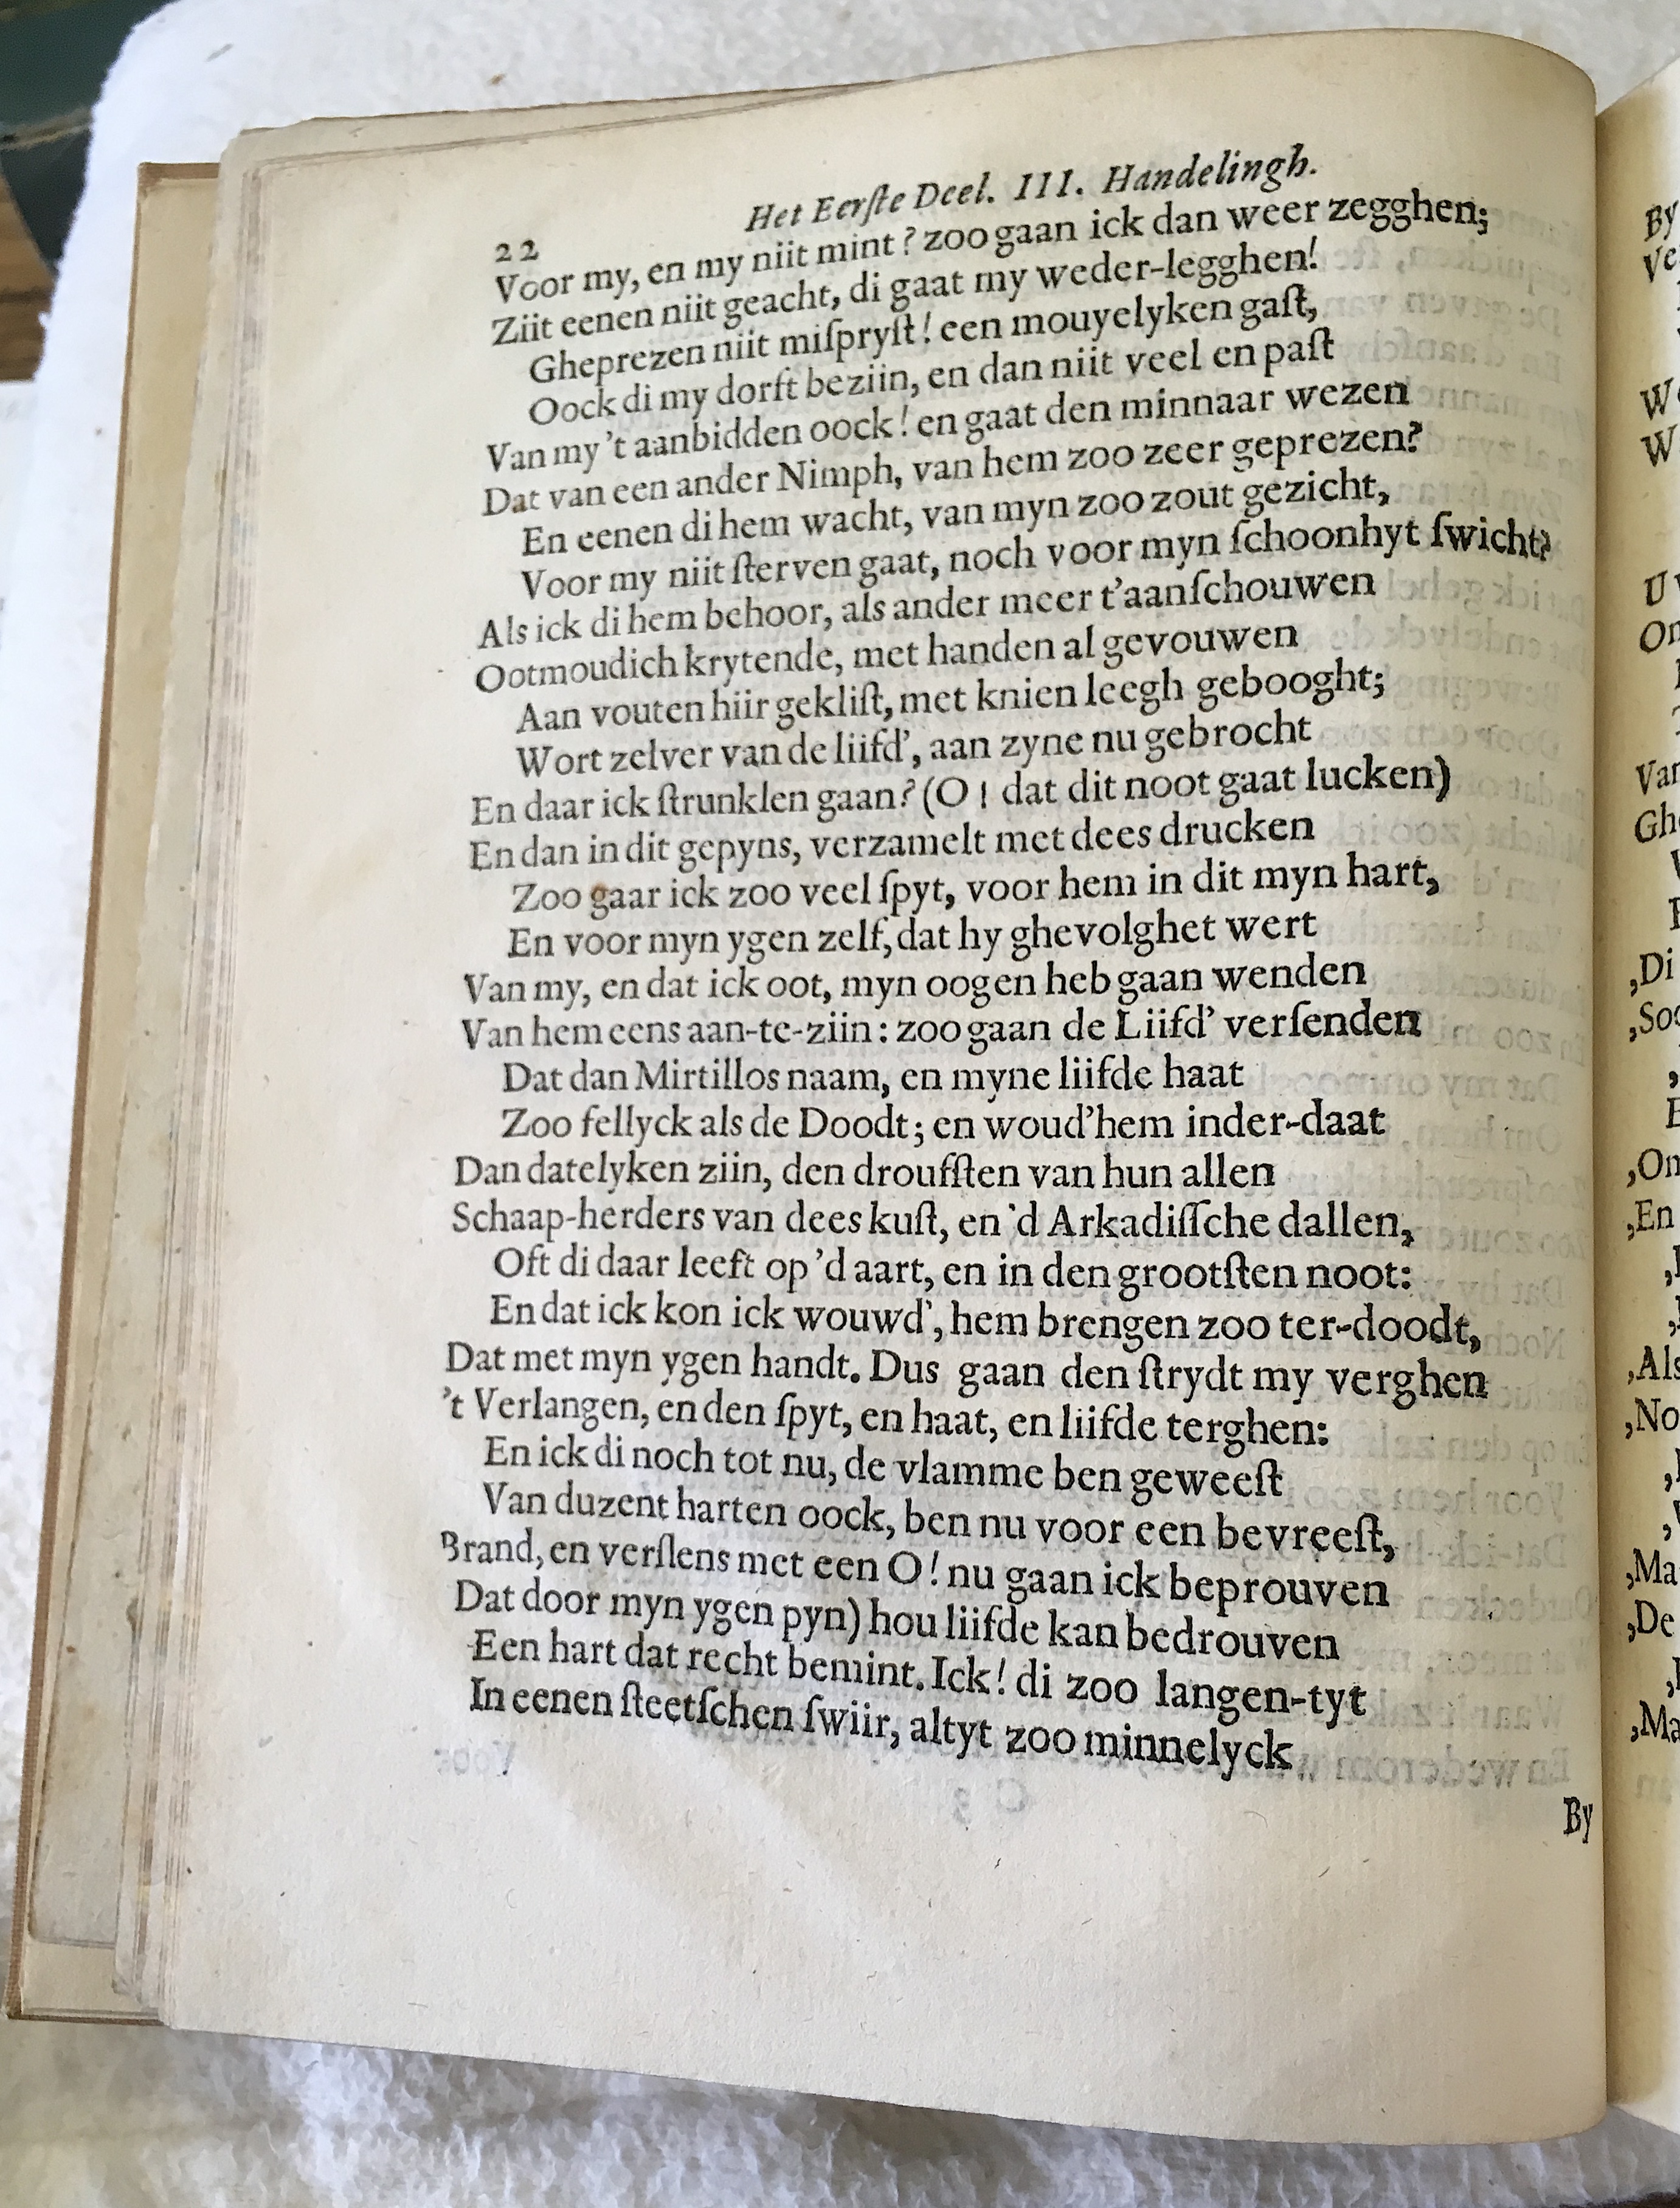 22 Het Eerſte Deel. III. Handelingh.
Voor my, en my niit mint? zoo gaan ick dan weer zegghen;
Ziit eenen niit geacht, di gaat my weder-legghen!
Gheprezen niit miſpryſt! een mouyelyken gaſt,
Oock di my dorft beziin, en dan niit veel en paſt
Van my 't aanbidden oock! en gaat den minnaar wezen
Dat van een ander Nimph, van hem zoo zeer geprezen?
En eenen di hem wacht, van myn zoo zout gezicht,
Voor my niit ſterven gaat, noch voor myn ſchoonhyt ſwicht?
Als ick di hem behoor, als ander meer t'aanſchouwen
Ootmoudich krytende, met handen al gevouwen
Aan vouten hiir gekliſt, met knien leegh gebooght;
Wort zelver van de liifd', aan zyne nu gebrocht
En daar ick ſtrunklen gaan? (O! dat dit noot gaat lucken)
En dan in dit gepyns, verzamelt met dees drucken
Zoo gaar ick zoo veel ſpyt, voor hem in dit myn hart,
En voor myn ygen zelf, dat hy ghevolghet wert
Van my, en dat ick oot, myn oogen heb gaan wenden
Van hem eens aan-te-ziin: zoo gaan de Liifd' verſenden
Dat dan Mirtillos naam, en myne liifde haat
Zoo fellyck als de Doodt; en woud'hem inder-daat
Dan datelyken ziin, den droufſten van hun allen
Schaap-herders van dees kuſt, en 'd Arkadiſſche dallen,
Oft di daar leeft op 'd aart, en in den grootſten noot:
En dat ick kon ick wouwd', hem brengen zoo ter-doodt,
Dat met myn ygen handt. Dus gaan den ſtrydt my verghen
't Verlangen, en den ſpyt, en haat, en liifde terghen:
En ick di noch tot nu, de vlamme ben geweeſt
Van duzent harten oock, ben nu voor een bevreeſt,
Brand, en verſlens met een O! nu gaan ick beprouven
Dat door myn ygen pyn) hou liifde kan bedrouven
Een hart dat recht bemint. Ick! di zoo langen-tyt
In eenen ſteetſchen ſwiir, altyt zoo minnelyck
By
By
W
W
Van
,Di
,En
,Als
,No
,Ma
,De
,Ma